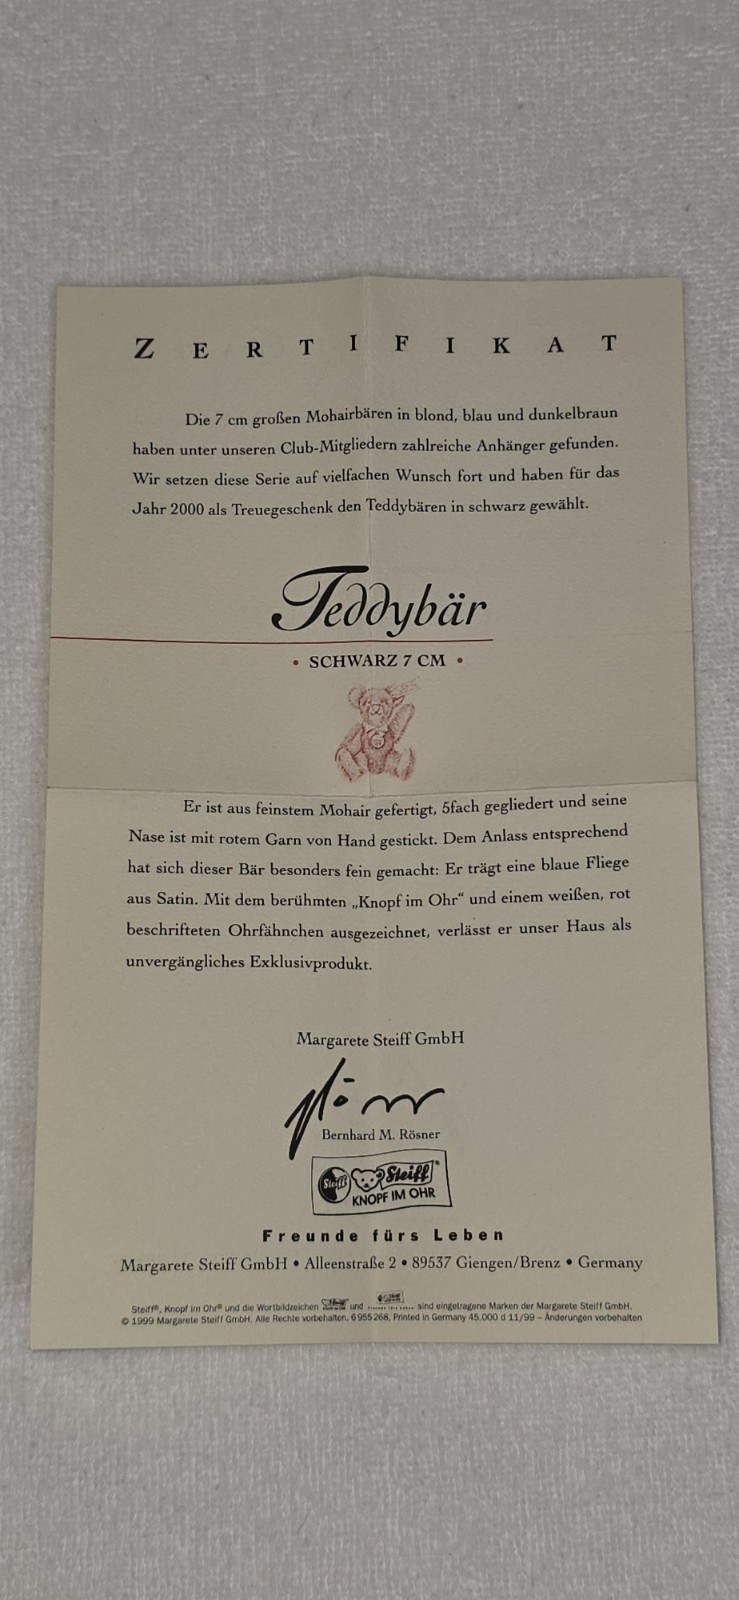 ZERTIFIKAT
Die 7 cm großen Mohairbären in blond, blau und dunkelbraun
haben unter unseren Club-Mitgliedern zahlreiche Anhänger gefunden.
Wir setzen diese Serie auf vielfachen Wunsch fort und haben für das
Jahr 2000 als Treuegeschenk den Teddybären in schwarz gewählt.
Teddybär
• SCHWARZ 7 CM •
Er ist aus feinstem Mohair gefertigt, 5fach gegliedert und seine
Nase ist mit rotem Garn von Hand gestickt. Dem Anlass entsprechend
hat sich dieser Bär besonders fein gemacht: Er trägt eine blaue Fliege
aus Satin. Mit dem berühmten „Knopf im Ohr“ und einem weißen, rot
beschrifteten Ohrfähnchen ausgezeichnet, verlässt er unser Haus als
unvergängliches Exklusivprodukt.
Margarete Steiff GmbH
Bernhard M. Rösner
Steiff Steiff®
KNOPF IM OHR
Freunde fürs Leben
Margarete Steiff GmbH • Alleenstraße 2 • 89537 Giengen/Brenz • Germany
Steiff®, Knopf im Ohr® und die Wortbildzeichen und sind eingetragene Marken der Margarete Steiff GmbH.
© 1999 Margarete Steiff GmbH. Alle Rechte vorbehalten. 6955268, Printed in Germany 45.000 d 11/99 – Änderungen vorbehalten